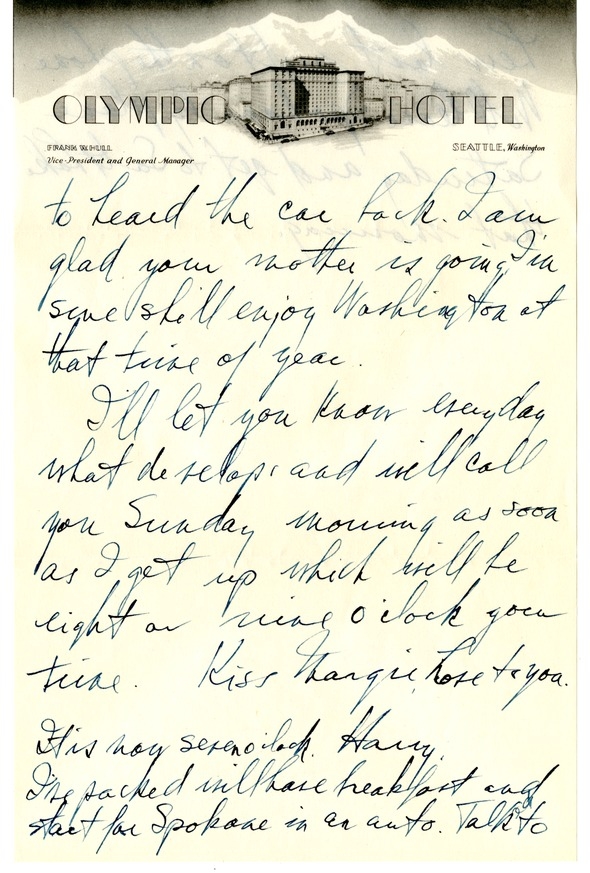 OLYMPIC HOTEL
FRANK W. HULL
Vice-President and General Manager
SEATTLE, Washington
to heard the car back. I am
glad your mother is going, I'm
sure she'll enjoy Washington at
that time of year.
I'll let you know everyday
what develops and will call
you Sunday morning as soon
as I get up which will be
eight or nine o'clock your
time. Kiss Margie, love to you.
It is now seven o'clock. Harry
I've packed will have breakfast and
start for Spokane in an auto. Talked to